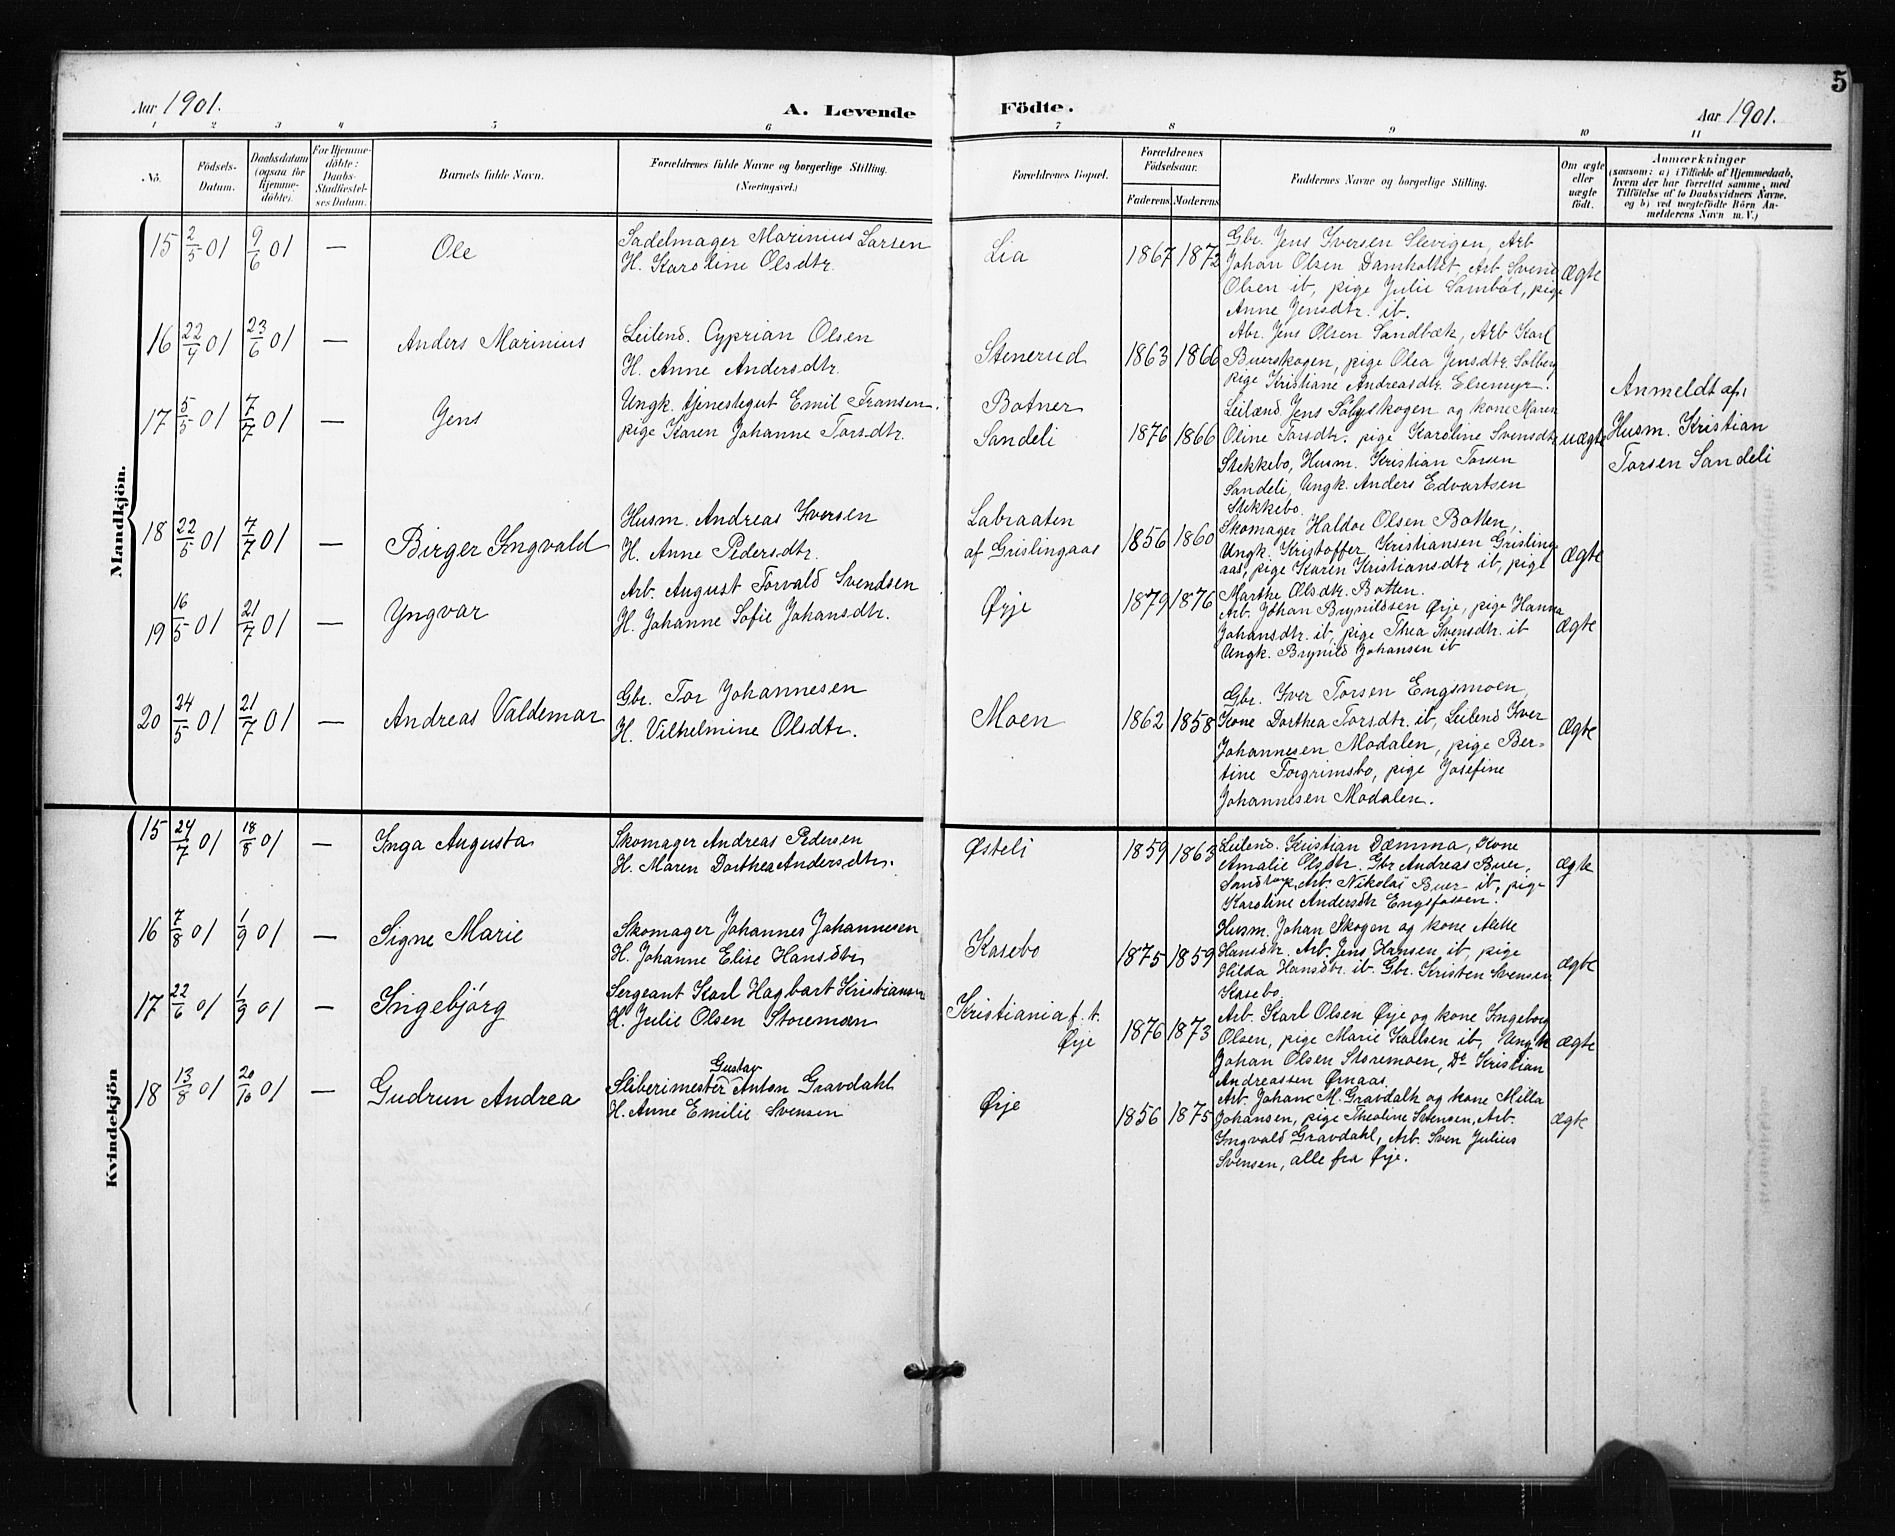 5
Aar 1901.
A. Levende
Födte.
Aar 1901.
1 2 3 4 5 6 7 8 9 10 11
No.
Födsels-Datum.
Daabsdatum (ogsaa for hjemme-döbte).
For Hjemme-döbte: Daabs-Stadfæstel-ses Datum.
Barnets fulde Navn.
Forældrenes fulde Navne og borgerlige Stilling.
(Næringsvei.)
Forældrenes Bopæl.
Forældrenes Födselsaar.
Faderens Moderens
Faddernes Navne og borgerlige Stilling.
Om ægte eller uægte födt.
Anmærkninger
(saasom: a) i Tilfælde af Hjemmedaab,
hvem der har forrettet samme, med
Tilföielse af to Daabsvidners Navne,
og b) ved uægtefödte Börn An-
melderens Navn m. V.)
Mandkjön.
15 2/5 01 9/6 01 — Ole
Sadelmager Marinius Larsen
H. Karoline Olsdtr.
Lia 1867 1872
Gbr. Jens Iversen Slevigen, Arb
Johan Olsen Damholtet, Arb. Svend
Olsen ib, pige Julie Sambøl, pige
Anne Jensdtr. ib.
Ægte
16 22/4 01 23/6 01 — Anders Marinius
Leilend. Cyprian Olsen
H. Anne Andersdtr.
Stenerud 1863 1866
Abr. Jens Olsen Sandbæk, Arb Karl
Buerskogen, pige Olea Jensdtr. Solberg
pige Kristiane Andreasdtr. Elsemyr.
17 5/5 01 7/7 01 — Jens
Ungk. tjenestegut Emil Fransen.
pige Karen Johanne Torsdtr.
Botner
Sandeli 1876 1866
Leilænd. Jens Sølyskogen og kone Maren
Oline Torsdtr. pige Karoline Svensdtr
Stekkebo, Husm. Kristian Torsen
Sandeli, Ungk. Anders Edvartsen
Stekkebo.
uægte
Anmeldt af:
Husm. Kristian
Torsen Sandeli
18 22/5 01 7/7 01 — Birger Ingvald
Husm. Andreas Iversen
H. Anne Pedersdtr.
Labraaten
af Grislingaas 1856 1860
Skomager Haldor Olsen Botten,
Ungk. Kristoffer Kristiansen Grisling-
aas, pige Karen Kristiansdtr ib, pige
Marthe Olsdtr. Botten.
Ægte
19 16/5 01 21/7 01 — Yngvar
Arb. August Torvald Svendsen
H. Johanne Sofie Johansdtr.
Ørje 1879 1876
Arb. Johan Brynildsen Ørje, pige Hanna
Johansdtr. ib, pige Thea Svensdtr. ib
Ungk. Brynild Johansen ib
Ægte
20 24/5 01 21/7 01 — Andreas Valdemar
Gbr. Tor Johannesen
H. Vilhelmine Olsdtr.
Moen 1862 1858
Gbr. Iver Torsen Engsmoen,
Kone Dorthea Torsdtr. ib, Leilend Iver
Johannesen Modalen, pige Ber-
tine Torgrimsbo, pige Josefine
Johannesen Modalen.
Ægte
Kvindekjön
15 24/7 01 18/8 01 — Inga Augusta
Skomager Andreas Pedersen
H. Maren Dorthea Andersdtr.
Østeli 1859 1863
Leilend. Kristian Dæmma, Kone
Amalie Olsdtr. Gbr Andreas Buer,
Sandtorp, Arb. Nikolai Buer ib, pige
Karoline Andersdtr Engsfossen.
Ægte
16 7/8 01 1/9 01 — Signe Marie
Skomager Johannes Johannesen
H. Johanne Elise Hansdtr
Kasebo 1875 1859
Husm. Johan Skogen og kone Mette
Hansdtr. Arb. Jens Hansen ib, pige
Hilda Hansdtr. ib. Gbr. Kristen Svensen
Kasebo.
Ægte
17 22/6 01 1/9 01 — Ingebjörg
Sergeant Karl Hagbart Kristiansen
H. Julie Olsen Storemoen
Kristiania f. t.
Ørje 1876 1873
Arb. Karl Olsen Ørje og kone Ingeborg
Olsen, pige Marie Karlsen ib, Ungk
Johan Olsen Storemoen, Do Kristian
Andreassen Ørnaas.
Ægte
18 13/8 01 20/10 01 — Gudrun Andrea
Gustav
Sliberimester Anton Gravdahl
H. Anne Emilie Svensen
Ørje 1856 1875
Arb. Johan M. Gravdahl og kone Milla
Johansen, pige Theoline Svensen, Arb.
Ingvald Gravdahl, Arb. Sven Julius
Svensen, alle fra Ørje.
Ægte